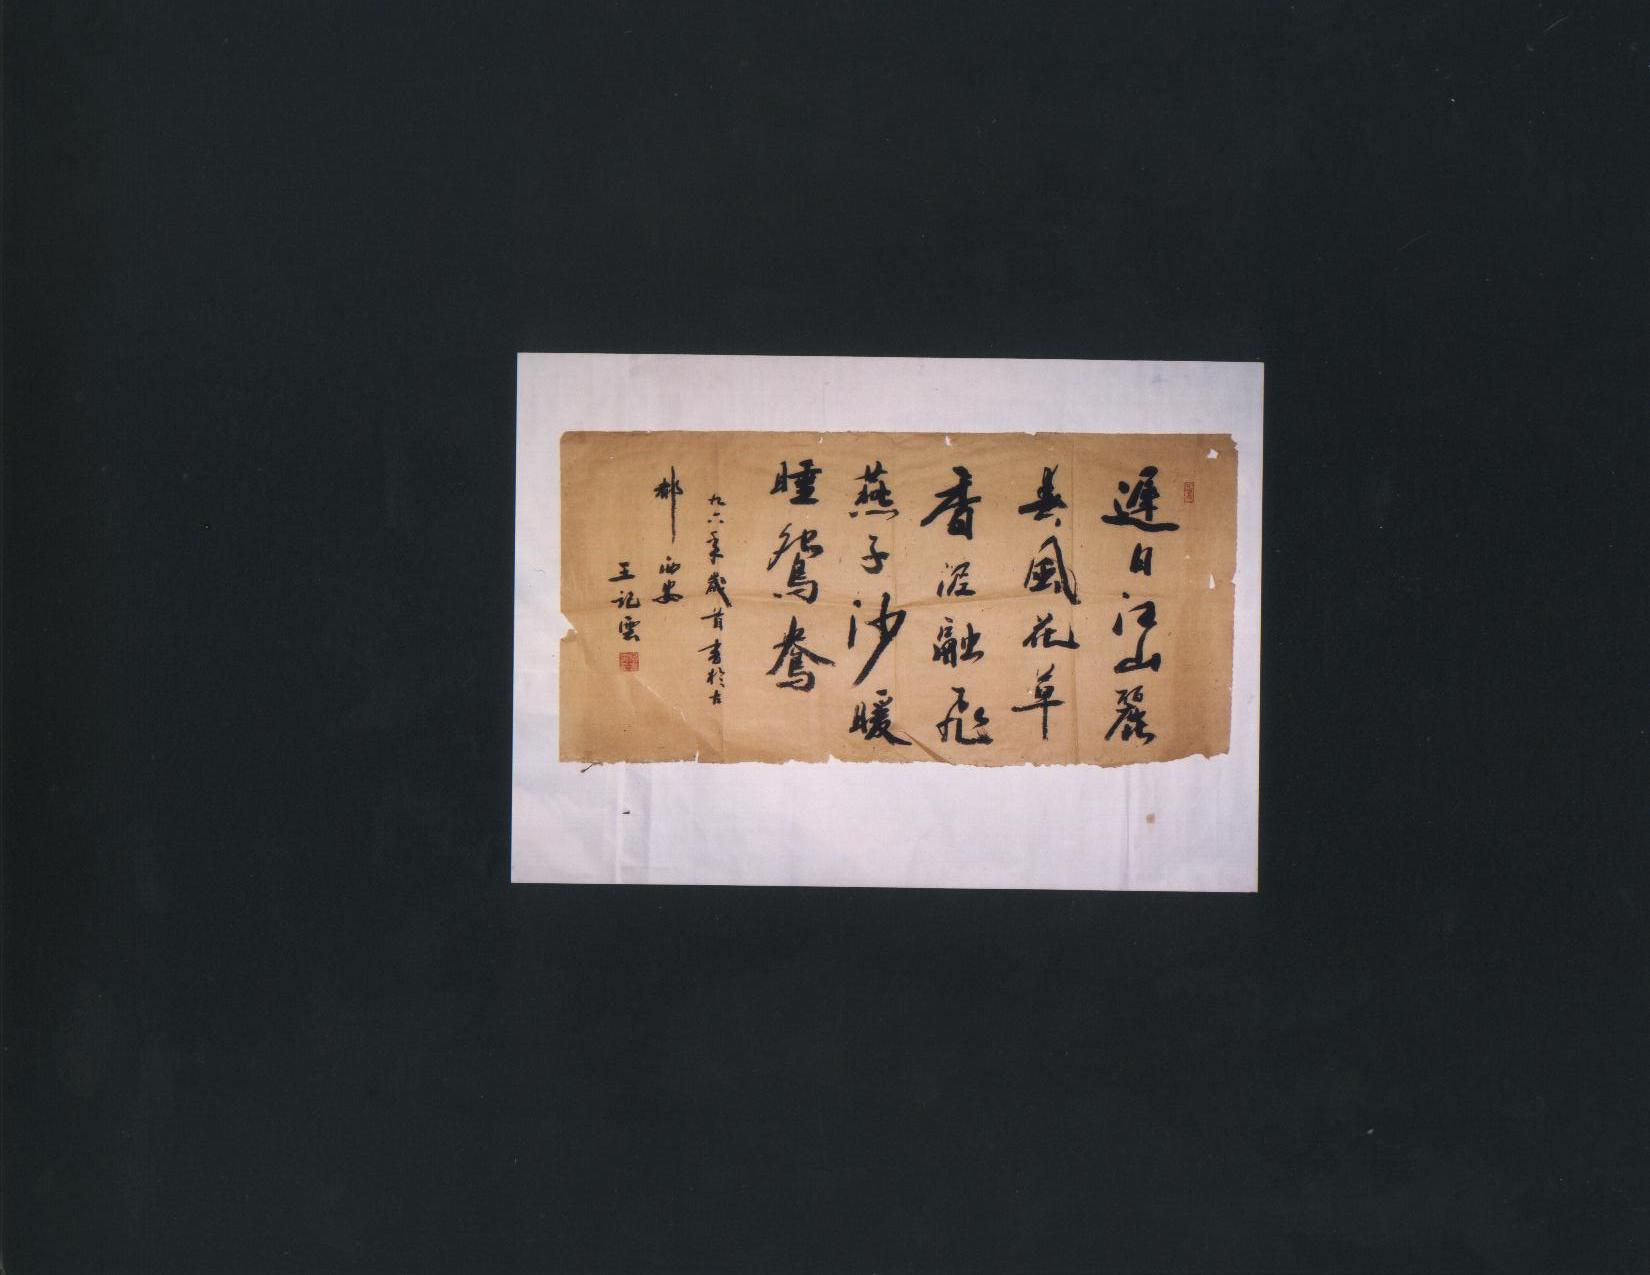 遲日江山麗
春風花草
香泥融飛
燕子沙暖
睡鴛鴦
九六年歲首書於古
都西安
王記雲